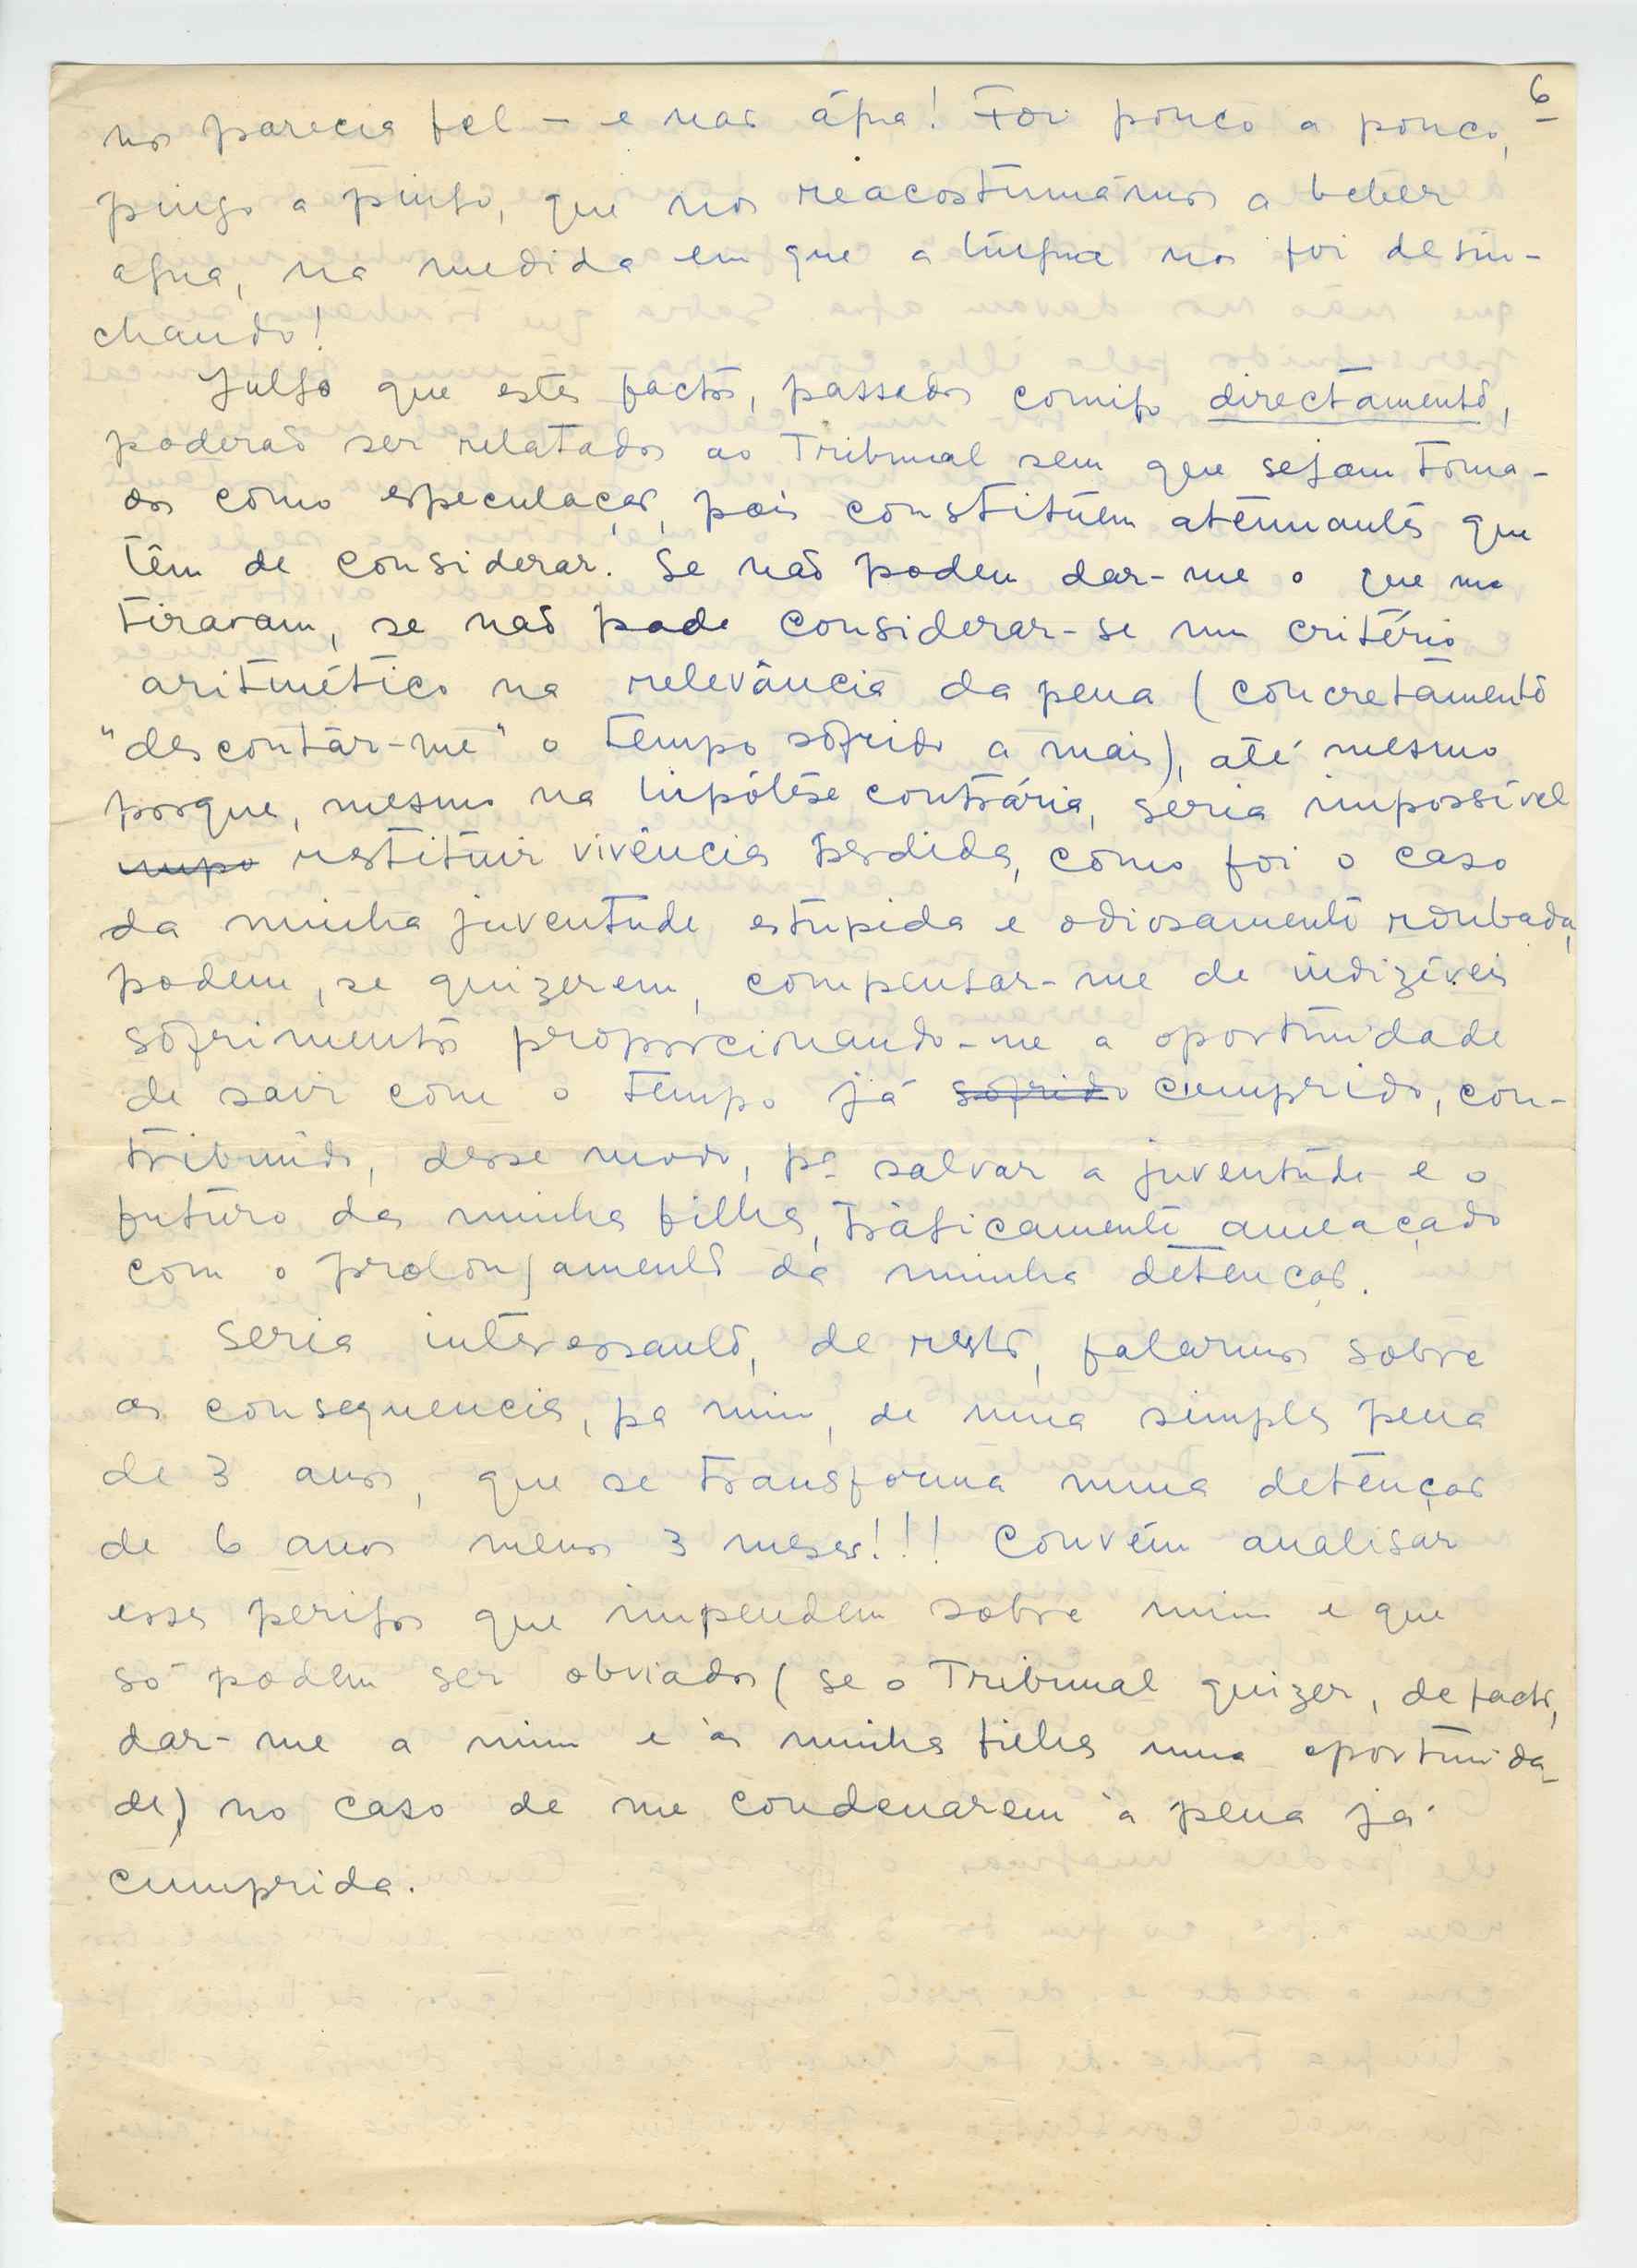 6
nos parecia fel — e não água! Foi pouco a pouco,
pingo a pingo, que nos reacostumámos a beber
agua, na medida em que a língua nos foi desin-
chando!
Julgo que estes factos, passados comigo directamente,
poderão ser relatados ao Tribunal sem que sejam toma-
dos como especulação, pois constituem atenuantes que
têm de considerar. Se não podem dar-me o que me
tiraram, se não pode considerar-se um critério
aritmético na relevância da pena (concretamente
"descontar-me" o tempo sofrido a mais), até mesmo
porque, mesmo na hipótese contrária, seria impossível
impo restituir vivência perdida, como foi o caso
da minha juventude estupida e odiosamente roubada,
podem, se quizerem, compensar-me de indizíveis
sofrimentos proporcionando-me a oportunidade
de sair com o tempo já sofrido cumprido, con-
tribuindo, desse modo, pª salvar a juventude e o
futuro da minha filha, tràgicamente ameaçado
com o prolongamento da minha detenção.
Seria interessante, de resto, falarmos sobre
as consequencias, pa mim, de uma simples pena
de 3 anos, que se transforma numa detenção
de 6 anos menos 3 meses!!! Convém analisar
esses perigos que impendem sobre mim e que
só podem ser obviados (se o Tribunal quizer, de facto,
dar-me a mim e à minha filha uma oportunida-
de) no caso de me condenarem à pena já
cumprida.